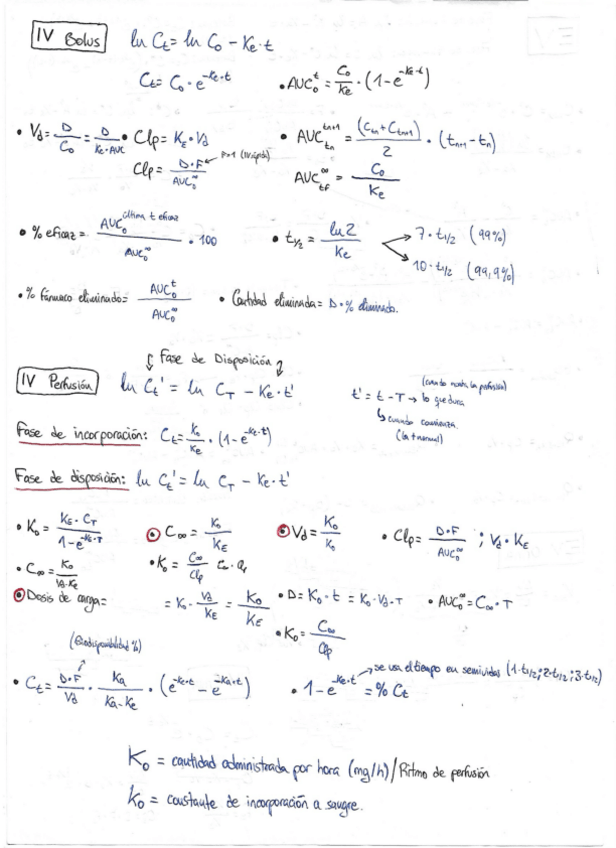 IV Bolus ln Ct = ln C0 - Ke·t
Ct = C0 · e^-Ke·t • AUC0^t = C0/Ke · (1-e^-Ke·t)
• Vd = D/C0 = D/Ke·AUC • Clp = KE · Vd • AUCtn^tn+1 = (Ctn + Ctn+1)/2 · (tn+1 - tn)
Clp = D·F/AUC0^∞ F=1 (IV rápida) AUCtF^∞ = C0/Ke
• % eficaz = AUC0^última t eficaz/AUC0^∞ · 100 • t1/2 = ln 2/Ke 7· t1/2 (99%)
10· t1/2 (99,9%)
• % Fármaco eliminado = AUC0^t/AUC0^∞ • Cantidad eliminada = D · % eliminado.
Fase de Disposición
IV Perfusión ln Ct' = ln CT - Ke·t' t' = t - T → lo que dura
cuando comienza
Fase de incorporación: Ct = k0/Ke · (1-e^-Ke·t)
Fase de disposición: ln Ct' = ln CT - Ke·t'
• K0 = KE · CT/1-e^-Ke·T • C∞ = K0/KE • Vd = K0/k0 • Clp = D·F/AUC0^∞ ; Vd · KE
• C∞ = K0/Vd·KE • K0 = C∞/Clp
• Dosis de carga = = K0 · Vd/KE = K0/KE • D = K0 · t = K0 · Vd · T • AUC0^∞ = C∞ · T
• K0 = C∞/Clp
(Biodisponibilidad %) se usa el tiempo en semividas (1·t1/2; 2·t1/2; 3·t1/2)
• Ct = D·F/Vd · Ka/Ka-Ke · (e^-Ke·t - e^-Ka·t) • 1-e^-Ke·t = % Ct
K0 = cantidad administrada por hora (mg/h) / Ritmo de perfusión
k0 = constante de incorporación a sangre.